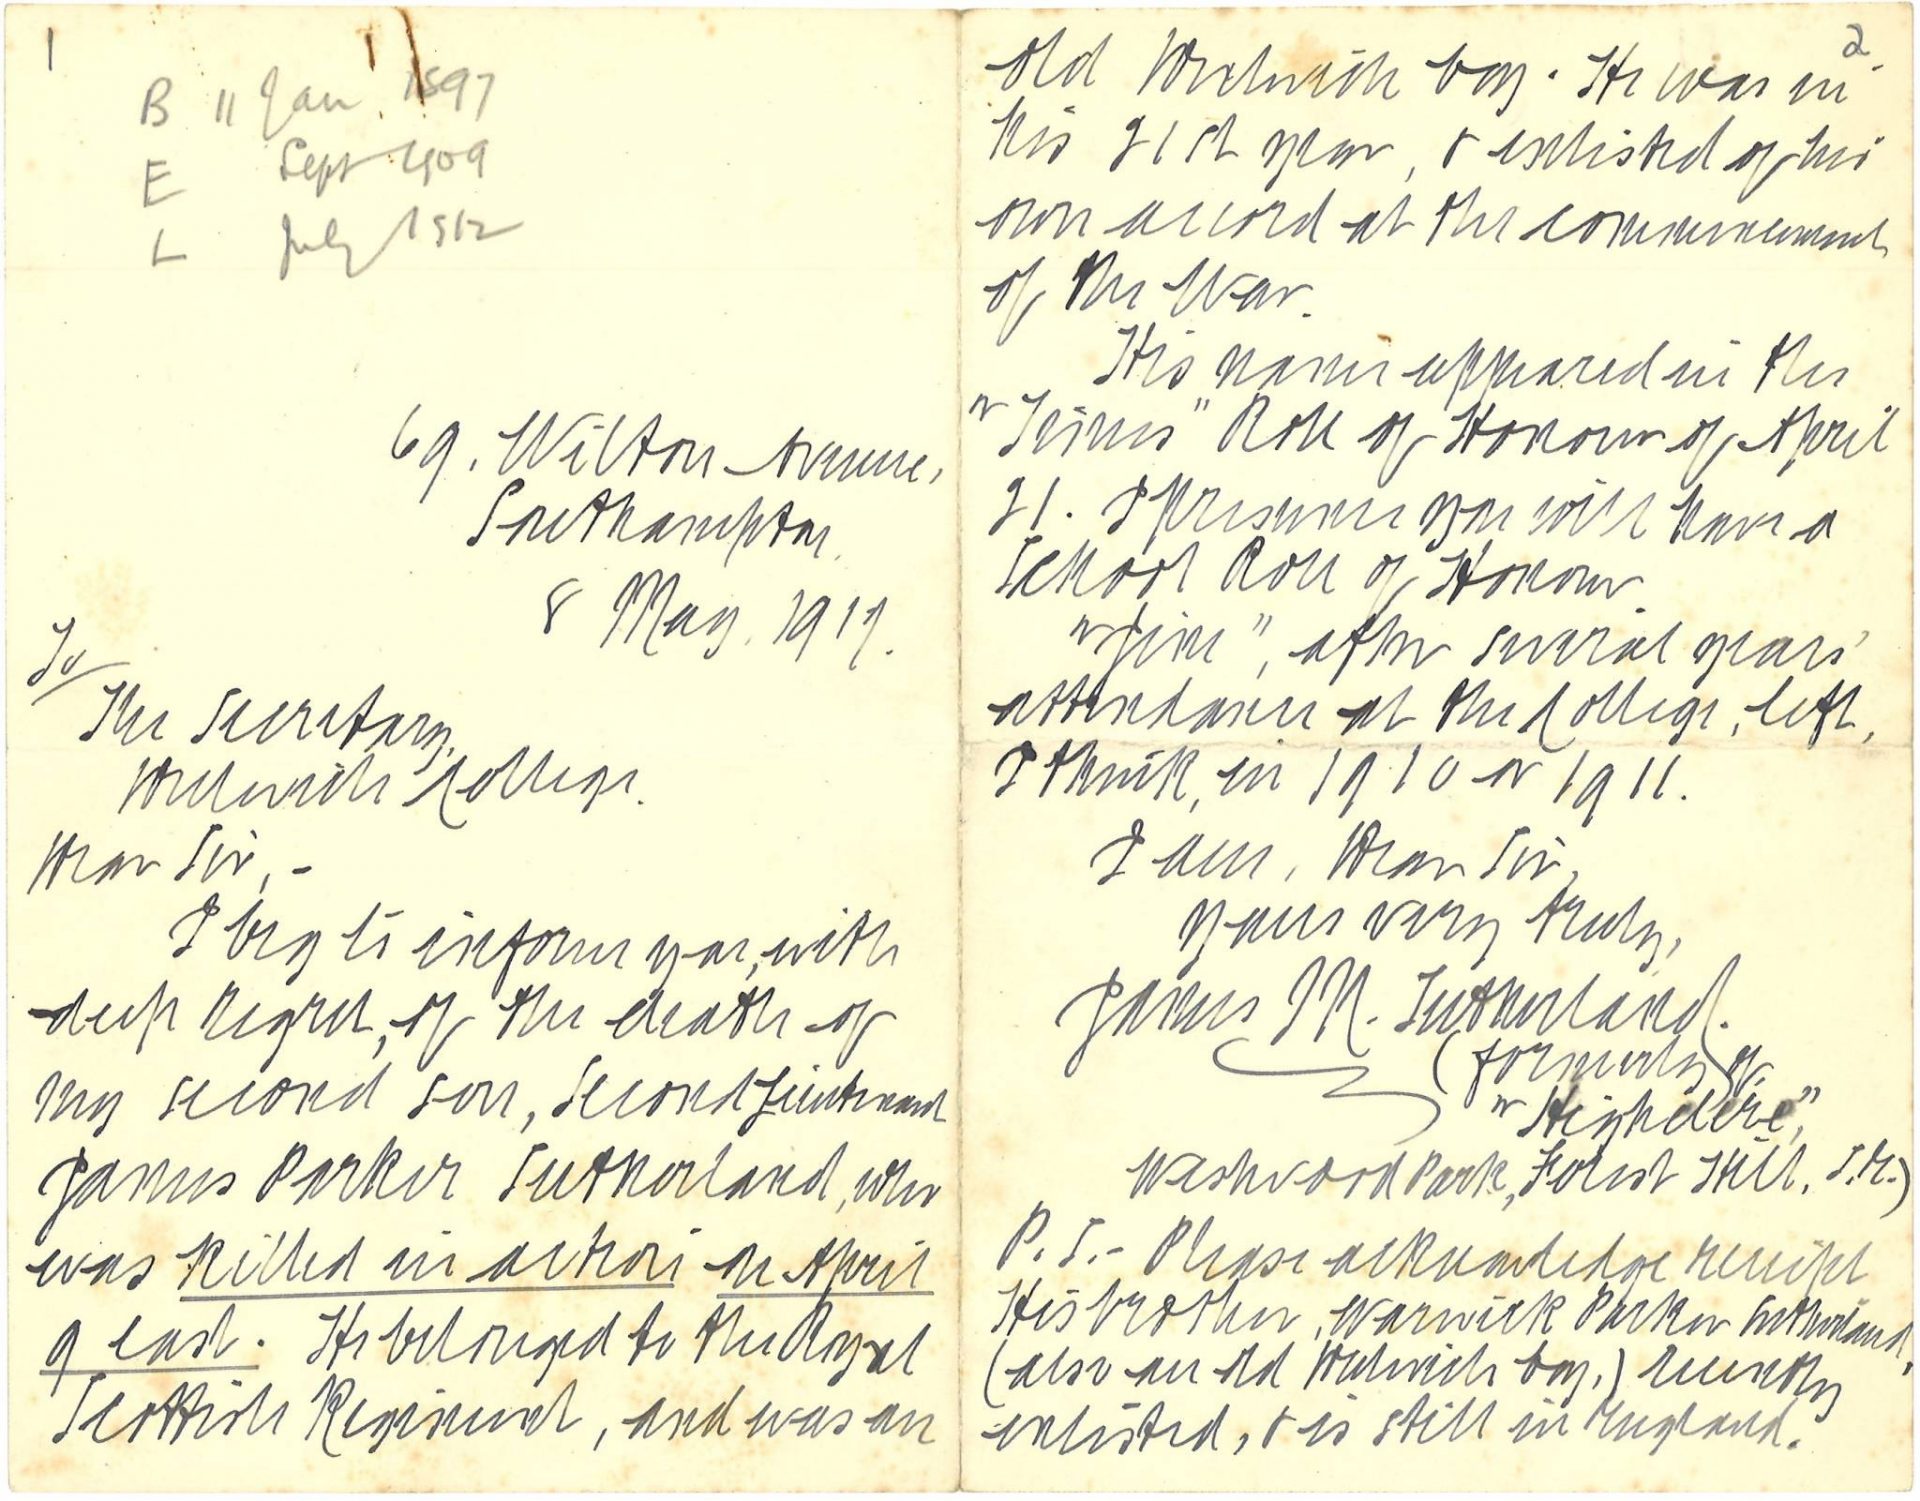 1
B 11 Jan 1897
E Sept 1909
L July 1912
69, Wilton Avenue,
Southampton.
8 May, 1917.
To
The Secretary,
Dulwich College.
Dear Sir, -
I beg to inform you, with
deep regret, of the death of
my second son, Second Lieutenant
James Parker Sutherland, who
was killed in action on April
9 last. He belonged to the Royal
Scottish Regiment, and was an
2
old Dulwich boy. He was in
his 21st year, & enlisted of his
own accord at the commencement
of the War.
His name appeared in the
"Times" Roll of Honour of April
21. I presume you will have a
School Roll of Honour.
"Jim", after several years'
attendance at the College, left,
I think, in 1910 or 1911.
I am, Dear Sir,
Yours very truly,
James M. Sutherland.
(formerly of
"Highclere",
Dashwood Park, Forest Hill, S.E.)
P.S. - Please acknowledge receipt
His brother, Warwick Parker Sutherland,
(also an old Dulwich boy,) recently
enlisted, & is still in England.